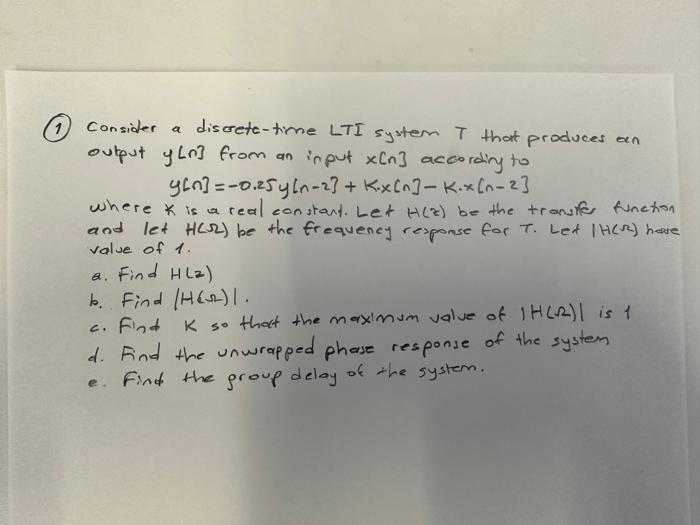 ① Consider a discrete-time LTI system T that produces an
output y[n] from an input x[n] according to
y[n] = -0.25y[n-2] + K.x[n] - K.x[n-2]
where K is a real constant. Let H(z) be the transfer function
and let H(Ω) be the frequency response for T. Let |H(Ω) have
value of 1.
a. Find H(z)
b. Find |H(Ω)|.
c. Find K so that the maximum value of |H(Ω)| is 1
d. Find the unwrapped phase response of the system
e. Find the group delay of the system.